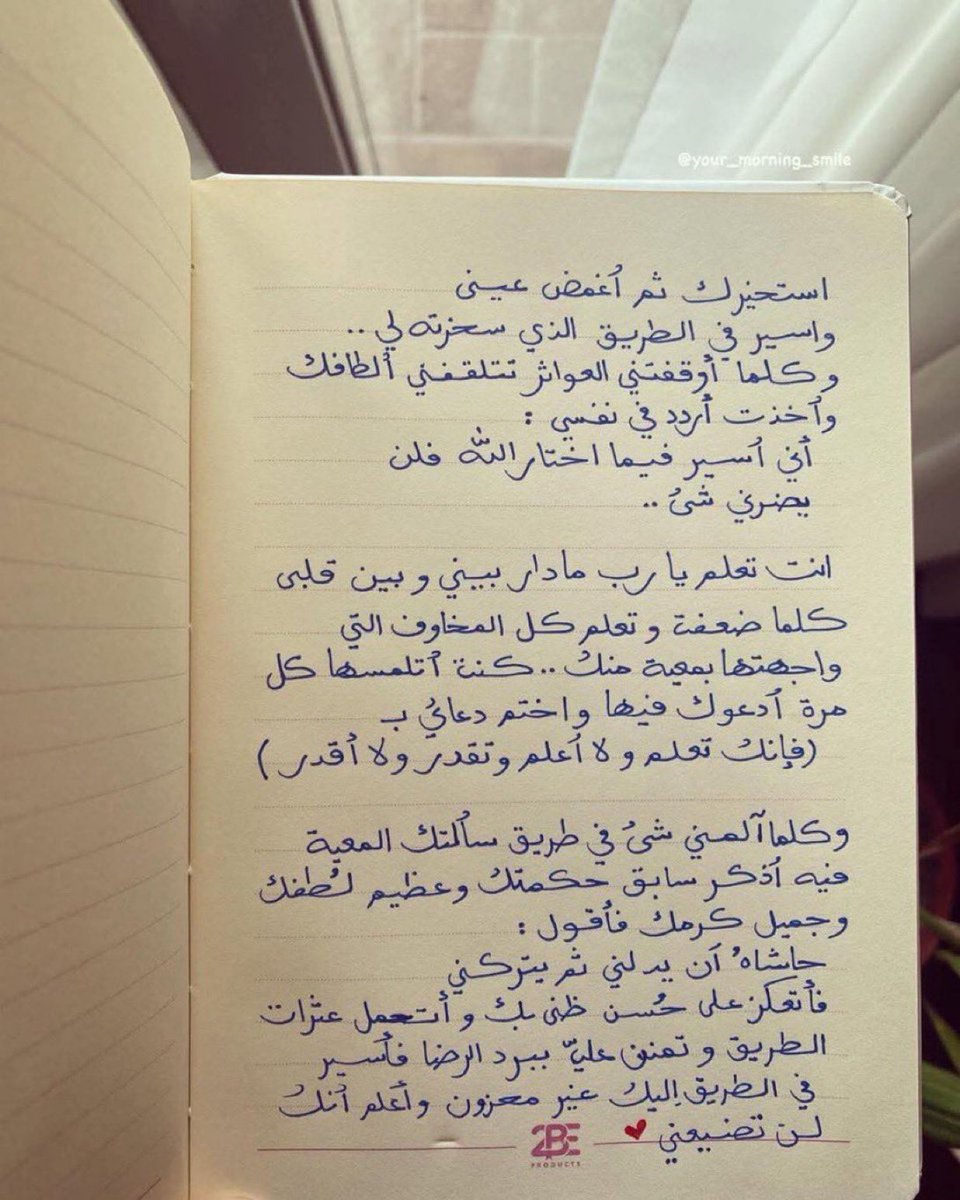 @your_morning_smile
استخيرك ثم أغمض عيني
واسير في الطريق الذي سخرته لي ..
وكلما أوقفتني العواثر تتلقفني ألطافك
وأخذت أردد في نفسي :
أني أسير فيما اختار الله فلن
يضرني شئ ..
انت تعلم يا رب مادار بيني وبين قلبي
كلما ضعفت وتعلم كل المخاوف التي
واجهتها بمعية منك .. كنت أتلمسها كل
مرة أدعوك فيها واختم دعائي بـ
(فإنك تعلم ولا أعلم وتقدر ولا أقدر )
وكلما آلمني شئ في طريق سألتك المعية
فيه أذكر سابق حكمتك وعظيم لُطفك
وجميل كرمك فأقول :
حاشاهُ أن يدلني ثم يتركني
فأتعكز على حُسن ظني بك وأتحمل عثرات
الطريق وتمنن عليّ ببرد الرضا فأسير
في الطريق إليك غير محزون وأعلم أنك
لن تضيعني
2BE
PRODUCTS